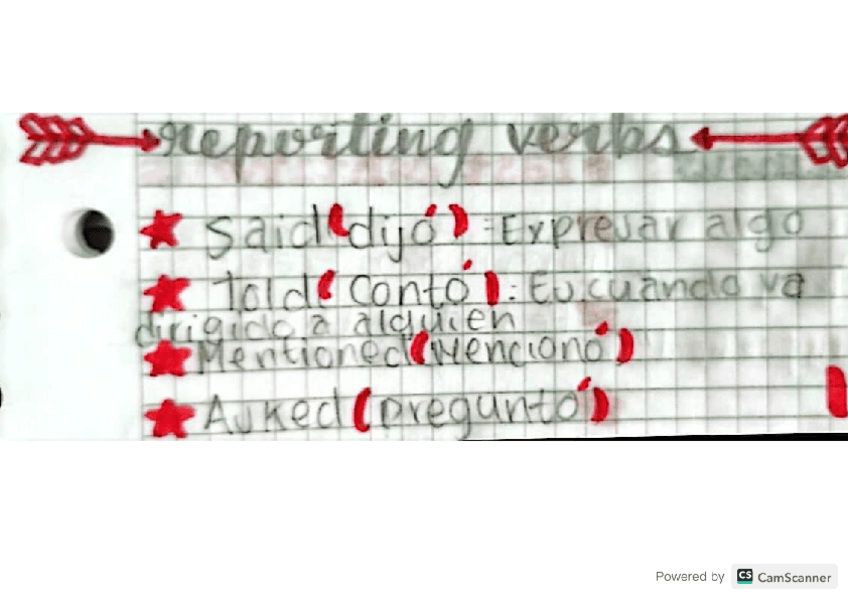 reporting verbs
Said (dijó) : Expresar algo
Told (contó) : Es cuando va
dirigido a alguien
Mentioned (Mencionó)
Asked (preguntó)
Powered by CS CamScanner